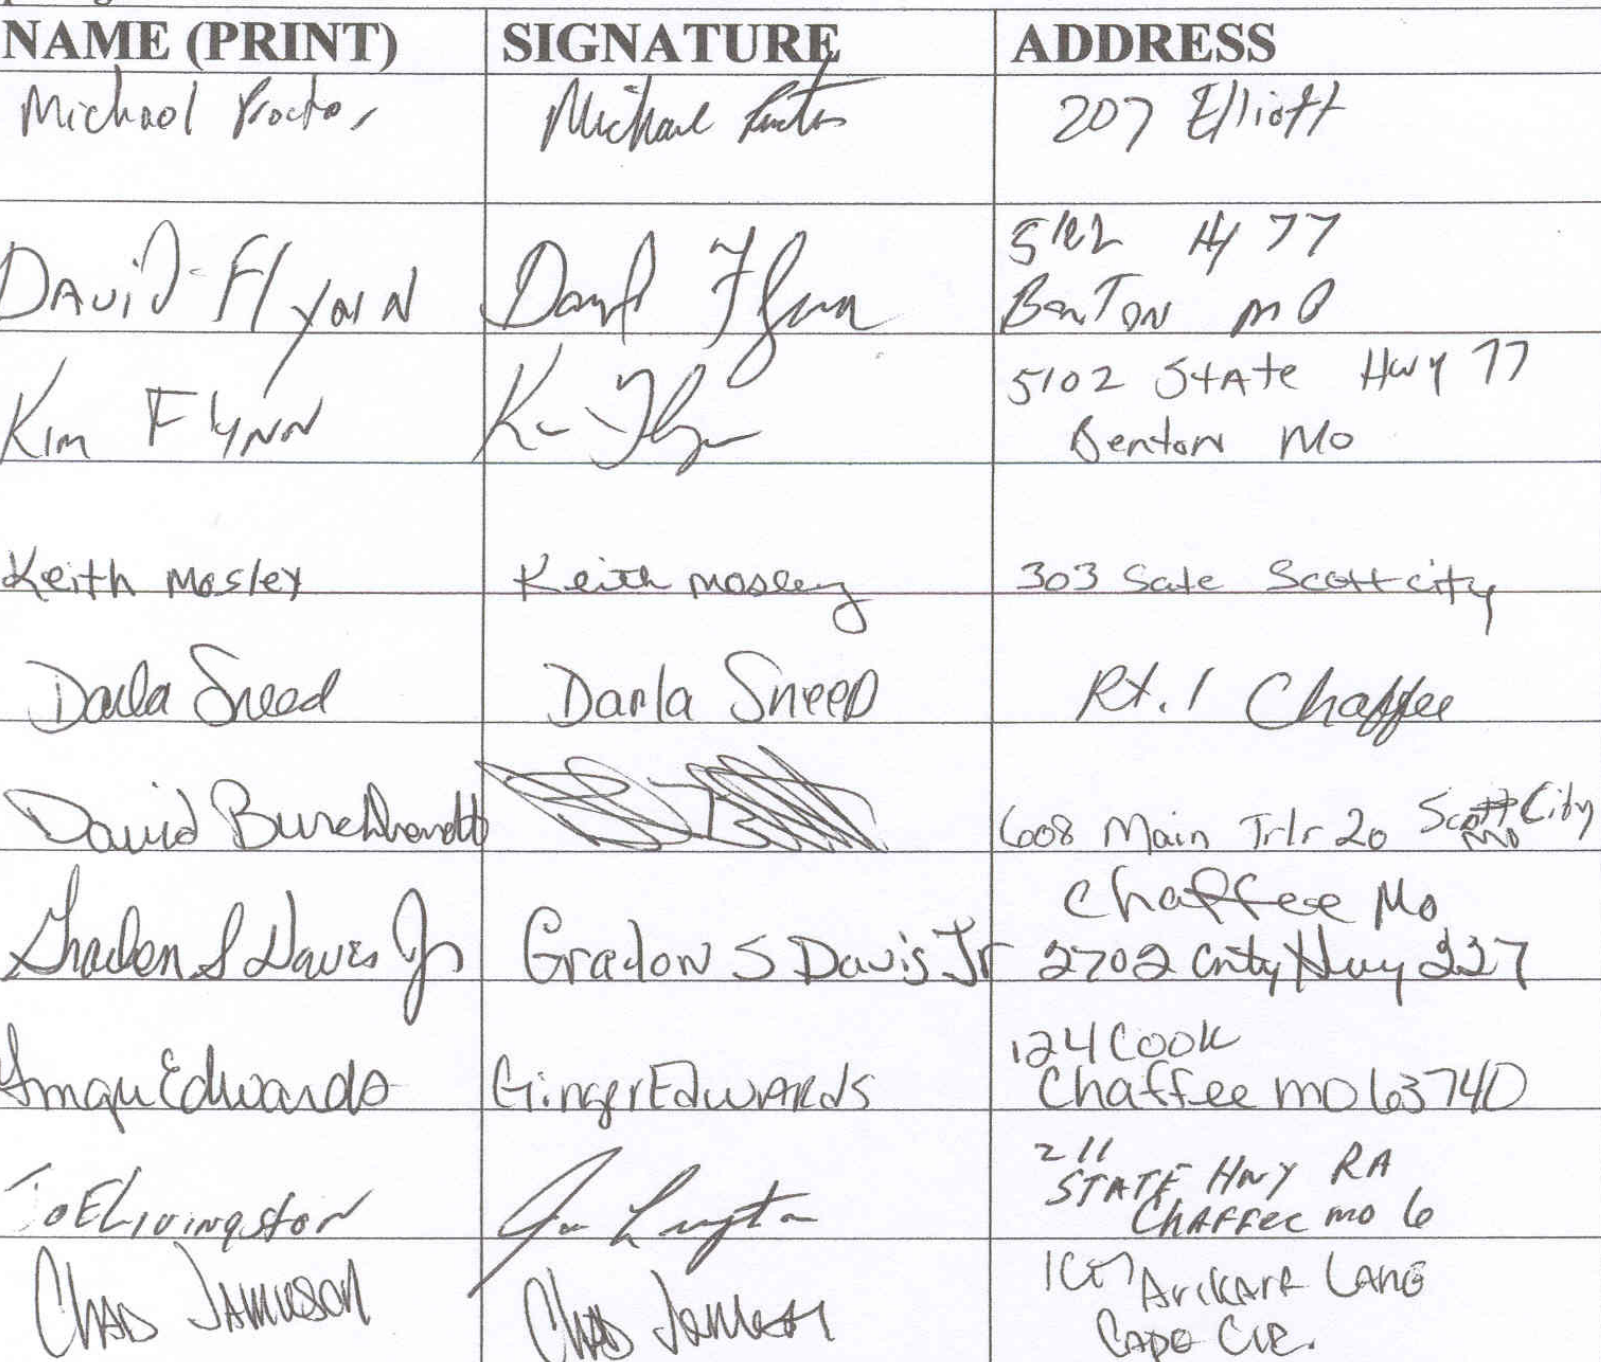 NAME (PRINT) SIGNATURE ADDRESS
Michael Proctor Michael Proctor 207 Elliott
David Flynn David Flynn
Hy 77
Benton MO
Kim Flynn Kim Flynn
5102 State Hwy 77
Benton Mo
Keith Mosley Keith Mosley 303 Scott city
Darla Sneed Darla Sneed Rt. 1 Chaffee
David 608 Main Trlr 20 Scott City
Mo
S Davis Jr Gradon S Davis Jr
Chaffee Mo
2702 Cnty Hwy 227
Ginger Edwards Ginger Edwards
124 Cook
Chaffee mo 63740
Joe Livingston Joe
211
STATE HWY RA
Chaffee mo 6
Chad Jamieson Chad
Lane
Cape